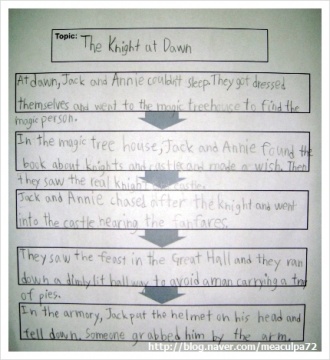 Topic: The Knight at Dawn
At dawn, Jack and Annie couldn't sleep. They got dressed
themselves and went to the magic treehouse to find the
magic person.
In the magic tree house, Jack and Annie found the
book about knights and castle and made a wish. Then
they saw the real knight
Jack and Annie chased after the knight and went
into the castle hearing the fanfares.
They saw the feast in the Great Hall and they ran
down a dimly lit hallway to avoid a man carrying a tray
of pies.
In the armory, Jack put the helmet on his head and
fell down. Someone grabbed him by the arm.
http://blog.naver.com/meaculpa72